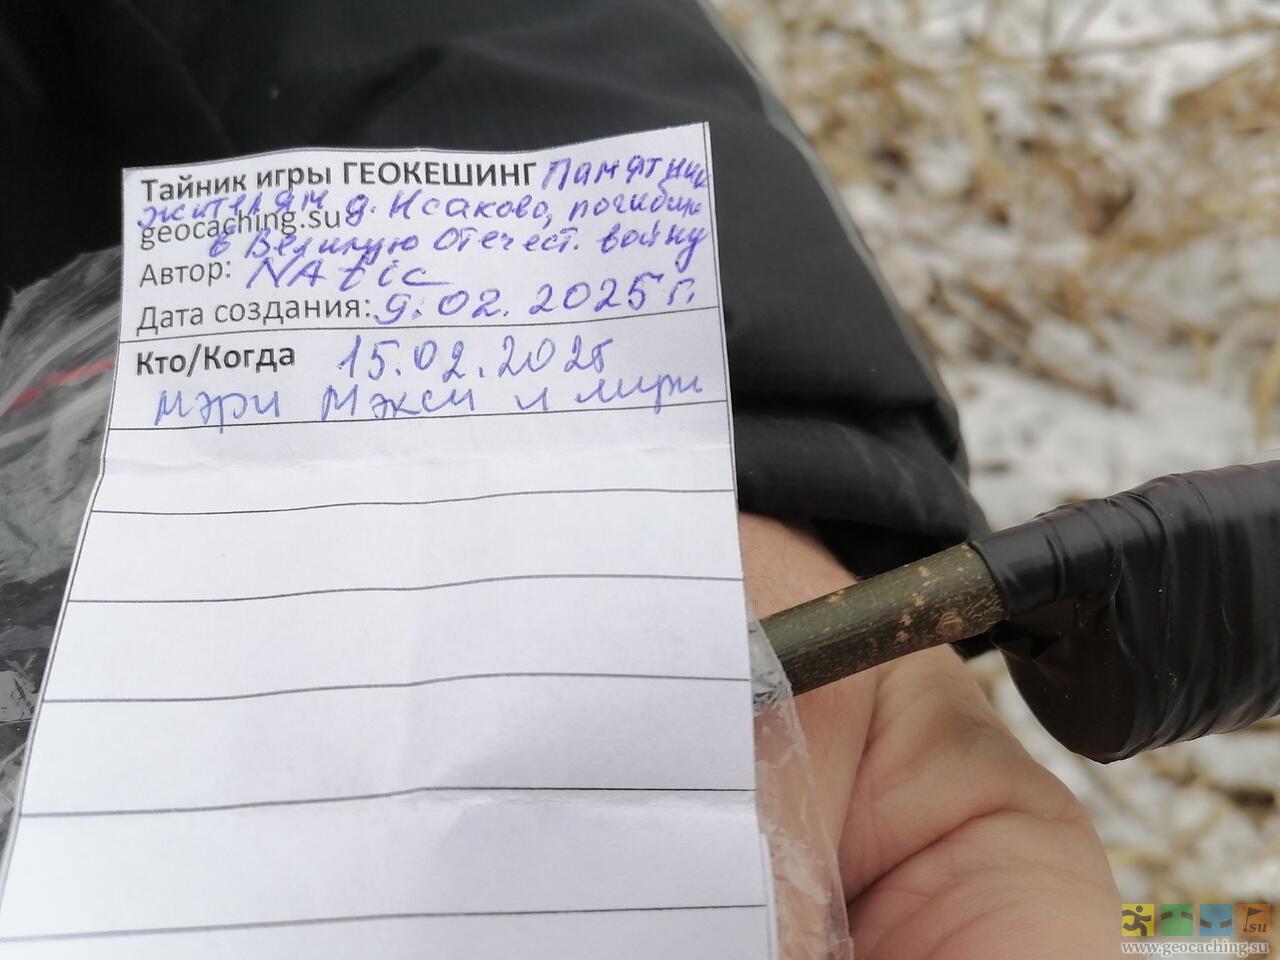 Тайник игры ГЕОКЕШИНГ Памятник
жителям д. Исаково, погибш
geocaching.su
в Великую Отечест. войну
Автор: NAtic
Дата создания: 9.02.2025 г.
Кто/Когда 15.02.2025
Мэри Мэкси и мури
.su
www.geocaching.su